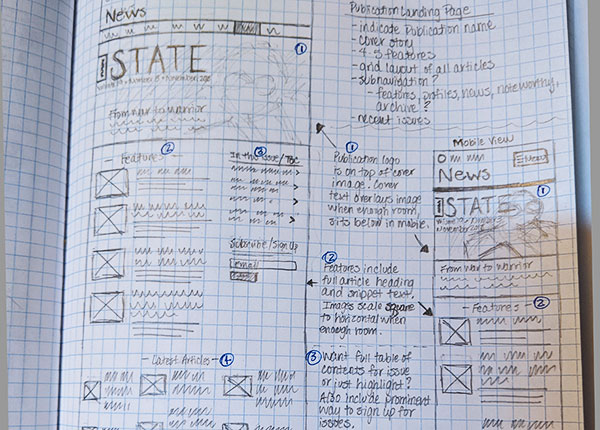 News
STATE
From War to Warrior
①
Features ②
③
In this issue / TOC
Subscribe / Sign Up
email
Latest Articles ④
Publication Landing Page
- indicate Publication name
- cover story
- 4-5 features
- grid layout of all articles
- subnavigation?
- features, profiles, news, noteworthy,
archive?
- recent issues
①
Publication logo
is on top of cover
image. Cover
text overlays image
when enough room,
sits below in mobile.
②
Features include
full article heading
and snippet text.
Images scale square
to horizontal when
enough room.
③ Want full table of
contents for issue
or just highlight?
Also include prominent
way to sign up for
issues.
Mobile View
Menu
News
①
STATE
From War to Warrior
- Features - ②